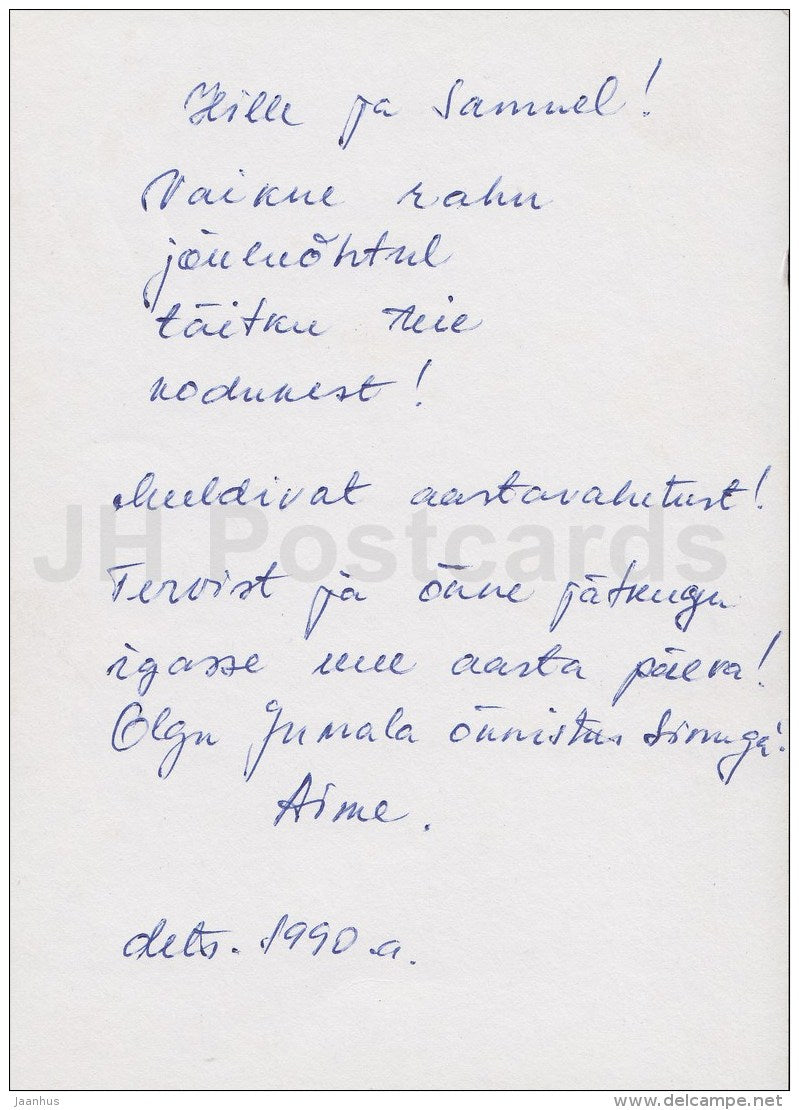 Hille ja Samuel!
Vaikne rahu
jõuluõhtul
täitku Teie
kodukest!
Meeldivat aastavahetust!
JH Postcards
Tervist ja õnne jätkugu
igasse uue aasta päeva!
Olgu Jumala õnnistus Sinuga!
Aime.
dets. 1990.a.
Jaanhus
www.delcampe.net